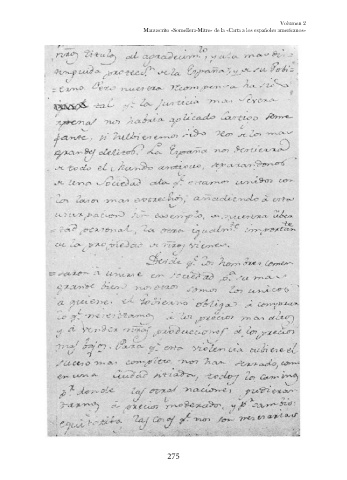 Volumen 2
Manuscrito «Somellera-Mitre» de la «Carta a los españoles americanos»
ntros titulos al agradecim.to, y a la mas dis
tinguida proteccn. de la España, y de su Gobi
erno. Pero nuestra recompensa ha sido
tal q.e la justicia mas severa
apenas nos habria aplicado castigo seme
jante, si hubieramos sido reos de los mas
grandes delitos. La España nos destierra
de todo el Mundo antiguo, separandonos
de una sociedad a la q.e estamos unidos con
los lazos mas estrechos, añadiendo à esta
usurpacion sin exemplo, de nuestra liber
tad personal, la otra igualm.te importante
de la propiedad de ntros vienes.
Desde q.e los hombres comen
zaron à unirse en sociedad p.a su mas
grande bien, nosotros somos los unicos
a quienes el Gobierno obliga à comprar
lo q.e necesitamos à los precios mas altos
y à vender ntras producciones à los precios
mas bajos. Para q.e esta violencia tubiese el
suceso mas completo nos han cerrado, como
en una ciudad sitiada, todos los caminos
p.r donde las otras naciones pudieran
darnos à precios moderados, y p.r cambios
equitativos las cosas q.e nos son necesarias
275